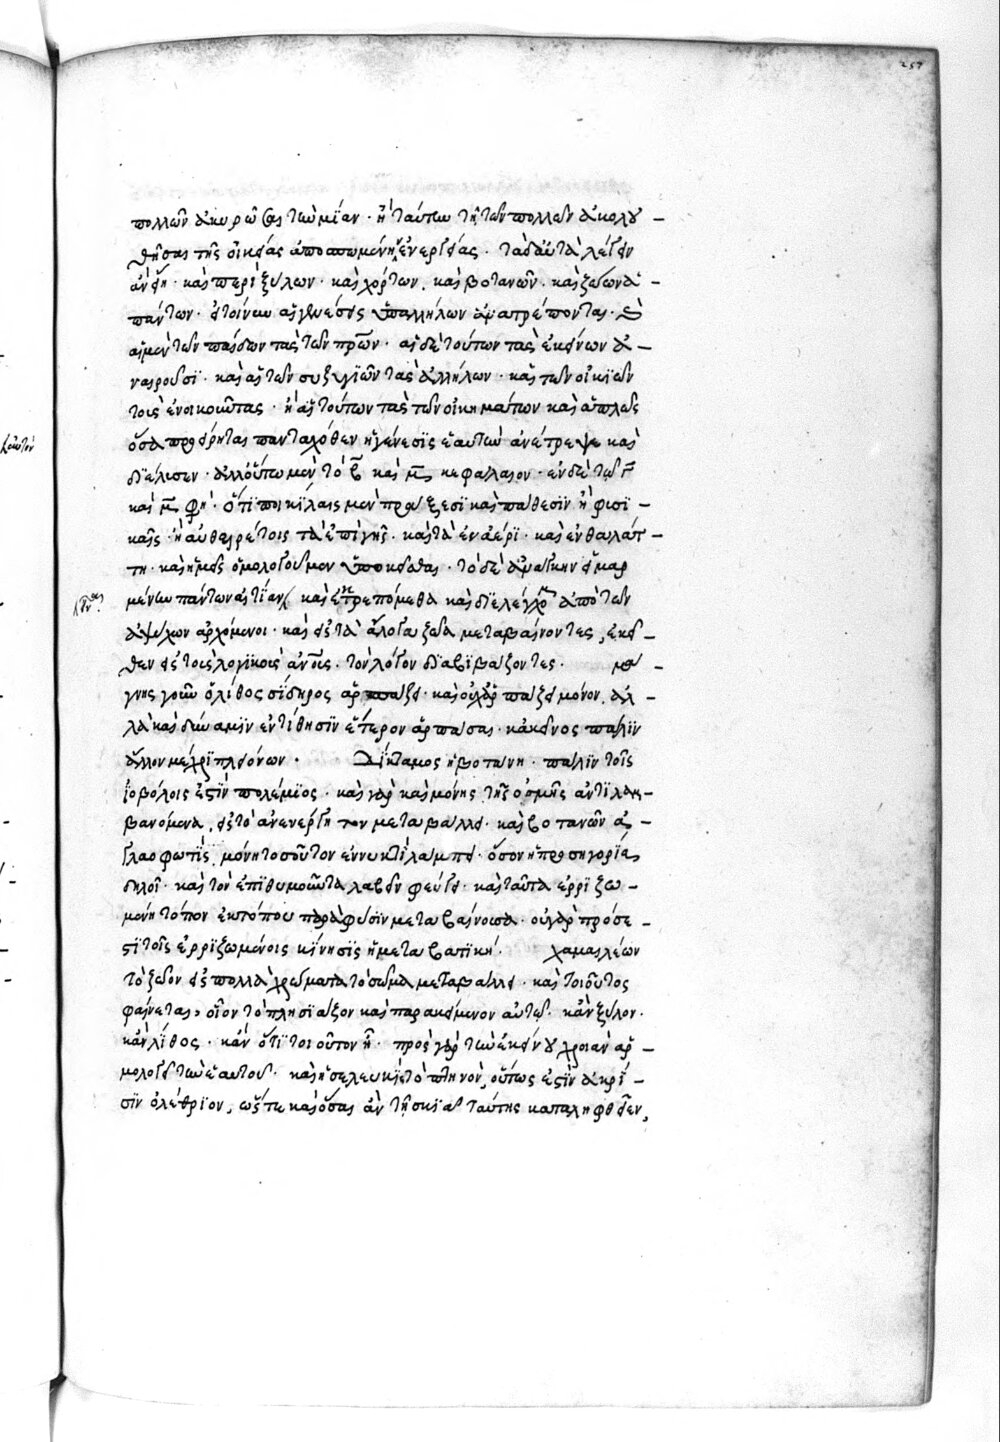 257
πολλῶν ἀκυρῶσαι τὴν μίαν · ἢ ταύτην τῇ τῶν πολλῶν ἀκολου
θῆσαι τῆς οἰκείας ἀποπαυομένην ἐνεργείας · τὰ δ' αὐτὰ λέγειν
ἂν εἴη · καὶ περὶ ξύλων · καὶ χόρτων · καὶ βοτανῶν · καὶ ζῴων ἁ
πάντων · εἰ τοίνυν αἱ γενέσεις ὑπ' ἀλλήλων ἀνατρέπονται · καὶ
αἱ μὲν τῶν παίδων τὰς τῶν πρῶν · αἱ δὲ τούτων τὰς ἐκείνων ἀ
ναιροῦσι · καὶ αἱ τῶν συζυγιῶν τὰς ἀλλήλων · καὶ τῶν οἰκιῶν
τοὺς ἐνοικοῦντας · ἢ αἱ τούτων τὰς τῶν οἰκημάτων καὶ ἁπλῶς
ὅσα προείρηται πανταχόθεν ἡ γένεσις ἑαυτὴν ἀνέτρεψε καὶ
διέλυσεν · ἀλλ' οὕτω μὲν τὸ καὶ κεφάλαιον · ἐν δὲ τῷ γ
καὶ φησὶ · ὅτι ποικίλαις μὲν πράξεσι καὶ πάθεσιν ἢ φυσι
καῖς · ἢ αὐθαιρέτοις τὰ ἐπὶ γῆς · καὶ τὰ ἐν ἀέρι · καὶ ἐν θαλάτ
τῃ · καὶ ἡμεῖς ὁμολογοῦμεν ὑποκεῖσθαι · τὸ δὲ ἀνάγκην εἱμαρ
μένην πάντων αἰτίαν καὶ ἐτρεπόμεθα καὶ διελέγχομεν ἀπὸ τῶν
ἀψύχων ἀρχόμενοι · καὶ εἰς τὰ ἄλογα ζῷα μεταβαίνοντες, ἐκεῖ
θεν εἰς τοὺς λογικοὺς ἀνους · τὸν λόγον διαβιβάζοντες · μα
γνης γοῦν ὁ λίθος σίδηρος ἁρπάζει · καὶ οὐχ ἁρπάζει μόνον, ἀλ
λὰ καὶ δύναμιν ἐντίθησιν ἕτερον ἁρπάσαι · κἀκεῖνος πάλιν
ἄλλον μέχρι πλειόνων · Δίκταμος ἡ βοτάνη · πάλιν τοῖς
ἰοβόλοις ἐστὶν πολέμιος · καὶ γὰρ καὶ μόνης τῆς ὀσμῆς ἀντιλαμ
βανόμενα, εἰς τὸ ἀνενέργητον μεταβάλλει · καὶ βοτανῶν ἀ
γλαοφωτὶς, μόνη τοσοῦτον ἐν νυκτὶ λάμπει · ὅσον ἡ προσηγορία
δηλοῖ · καὶ τὸν ἐπιθυμοῦντα λαβεῖν φεύγει · καὶ ταῦτα ἐρριζω
μένη τόπον ἐκ τόπου παρὰ φύσιν μεταβαίνουσα · οὐ γὰρ πρόσε
στι τοῖς ἐρριζωμένοις κίνησις ἡ μεταβατική · χαμαιλέων
τὸ ζῷον εἰς πολλὰ χρώματα τὸ σῶμα μεταβάλλει · καὶ τοιοῦτος
φαίνεται, οἷον τὸ πλησιάζον καὶ παρακείμενον αὐτῷ · κἂν ξύλον ·
κἂν λίθος · κἂν ὅτι τοιοῦτον ᾖ · πρὸς γὰρ τὴν ἐκείνου χροιὰν ἁρ
μολογεῖ τὴν ἑαυτοῦ · καὶ ἡ σελευκὶς τὸ πτηνὸν, οὕτως ἐστὶν ἀκρί
σιν ὀλέθριον, ὥστε καὶ ὅσαι ἂν τῇ σκιᾷ ταύτης καταληφθεῖεν,